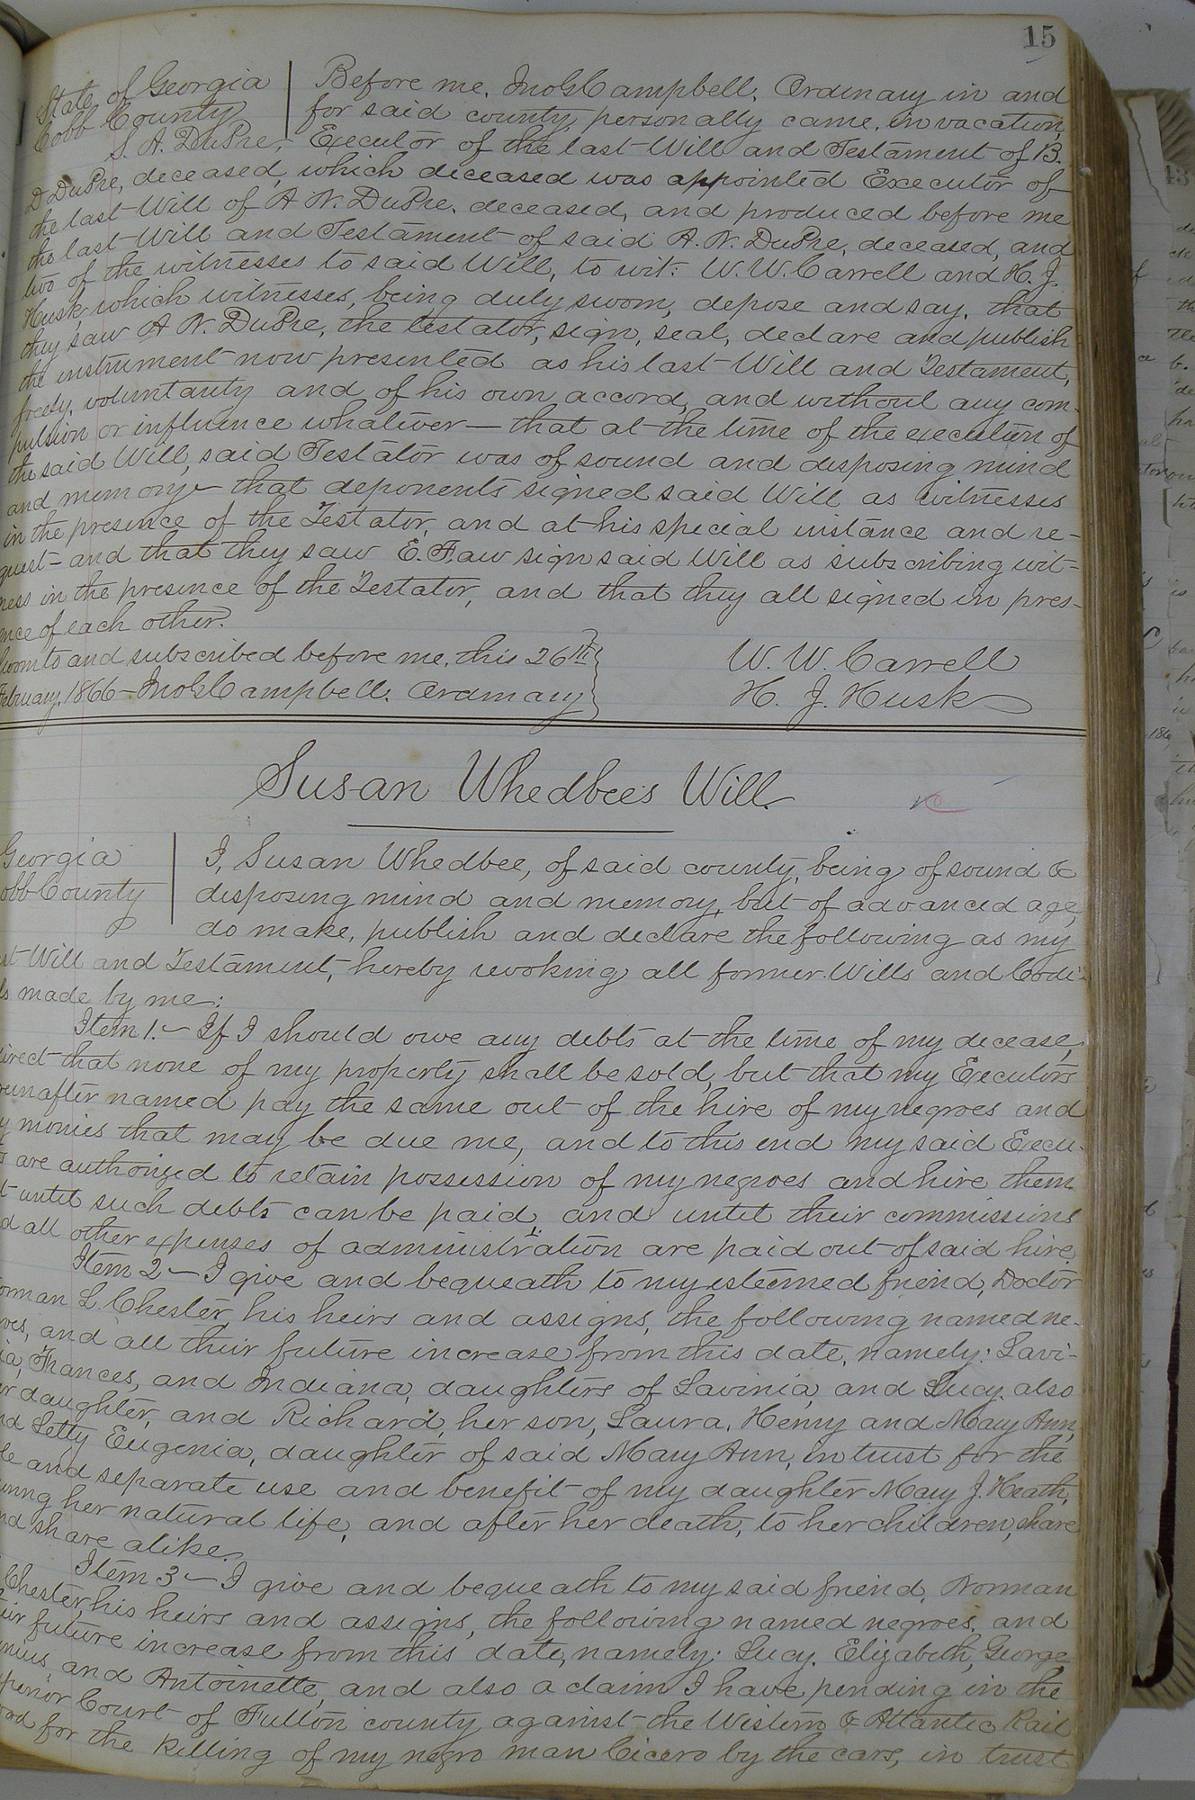 15
State of Georgia
Cobb County
Before me, Jno G Campbell, Ordinary in and
for said county, personally came, in vacation,
S. A. DuPre, Executor of the last Will and Testament of B.
D DuPre, deceased, which deceased was appointed Executor of
the last Will of A N. DuPre, deceased, and produced before me
the last Will and Testament of said A. N. DuPre, deceased, and
two of the witnesses to said Will, to wit: W. W. Carrell and H. J.
Husk, which witnesses, being duly sworn, depose and say, that
they saw A N. DuPre, the testator, sign, seal, declare and publish
the instrument now presented as his last Will and Testament,
freely, voluntarily and of his own accord, and without any com-
pulsion or influence whatever — that at the time of the execution of
the said Will, said Testator was of sound and disposing mind
and memory — that deponents signed said Will as witnesses
in the presence of the Testator, and at his special instance and re-
quest — and that they saw E. Faw sign said Will as subscribing wit-
ness in the presence of the Testator, and that they all signed in pres-
ence of each other.
Sworn to and subscribed before me, this 26th
February, 1866 — Jno G Campbell, Ordinary
W. W. Carrell
H. J. Husk
Susan Whedbee's Will
Georgia
Cobb County
I, Susan Whedbee, of said county, being of sound &
disposing mind and memory, but of advanced age,
do make, publish and declare the following as my
st Will and Testament, hereby revoking all former Wills and Codi-
ls made by me:
Item 1. — If I should owe any debts at the time of my decease,
direct that none of my property shall be sold, but that my Executors
reinafter named pay the same out of the hire of my negroes and
y monies that may be due me, and to this end my said Execu-
s are authorized to retain possession of my negroes and hire them
t until such debts can be paid, and until their commissions
d all other expenses of administration are paid out of said hire
Item 2 — I give and bequeath to my esteemed friend, Doctor
orman L Chester, his heirs and assigns, the following named ne-
oes, and all their future increase from this date, namely: Lavi-
ia, Frances, and Indiana, daughters of Lavinia, and Lucy, also
er daughter, and Richard, her son, Laura, Henny and Mary Ann,
nd Letty Eugenia, daughter of said Mary Ann, in trust for the
le and separate use and benefit of my daughter Mary J. Heath,
uring her natural life, and after her death, to her children, share
nd share alike.
Item 3 — I give and bequeath to my said friend, Norman
Chester, his heirs and assigns, the following named negroes, and
eir future increase from this date, namely: Lucy, Elizabeth, George
and Antoinette, and also a claim I have pending in the
uperior Court of Fulton county against the Western & Atlantic Rail
oad for the killing of my negro man Cicero by the cars, in trust